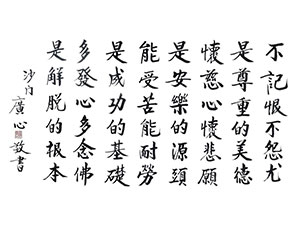 不記恨不怨尤
是尊重的美德
懷慈心懷悲願
是安樂的源頭
能受苦能耐勞
是成功的基礎
多發心多念佛
是解脫的根本
沙門廣心敬書